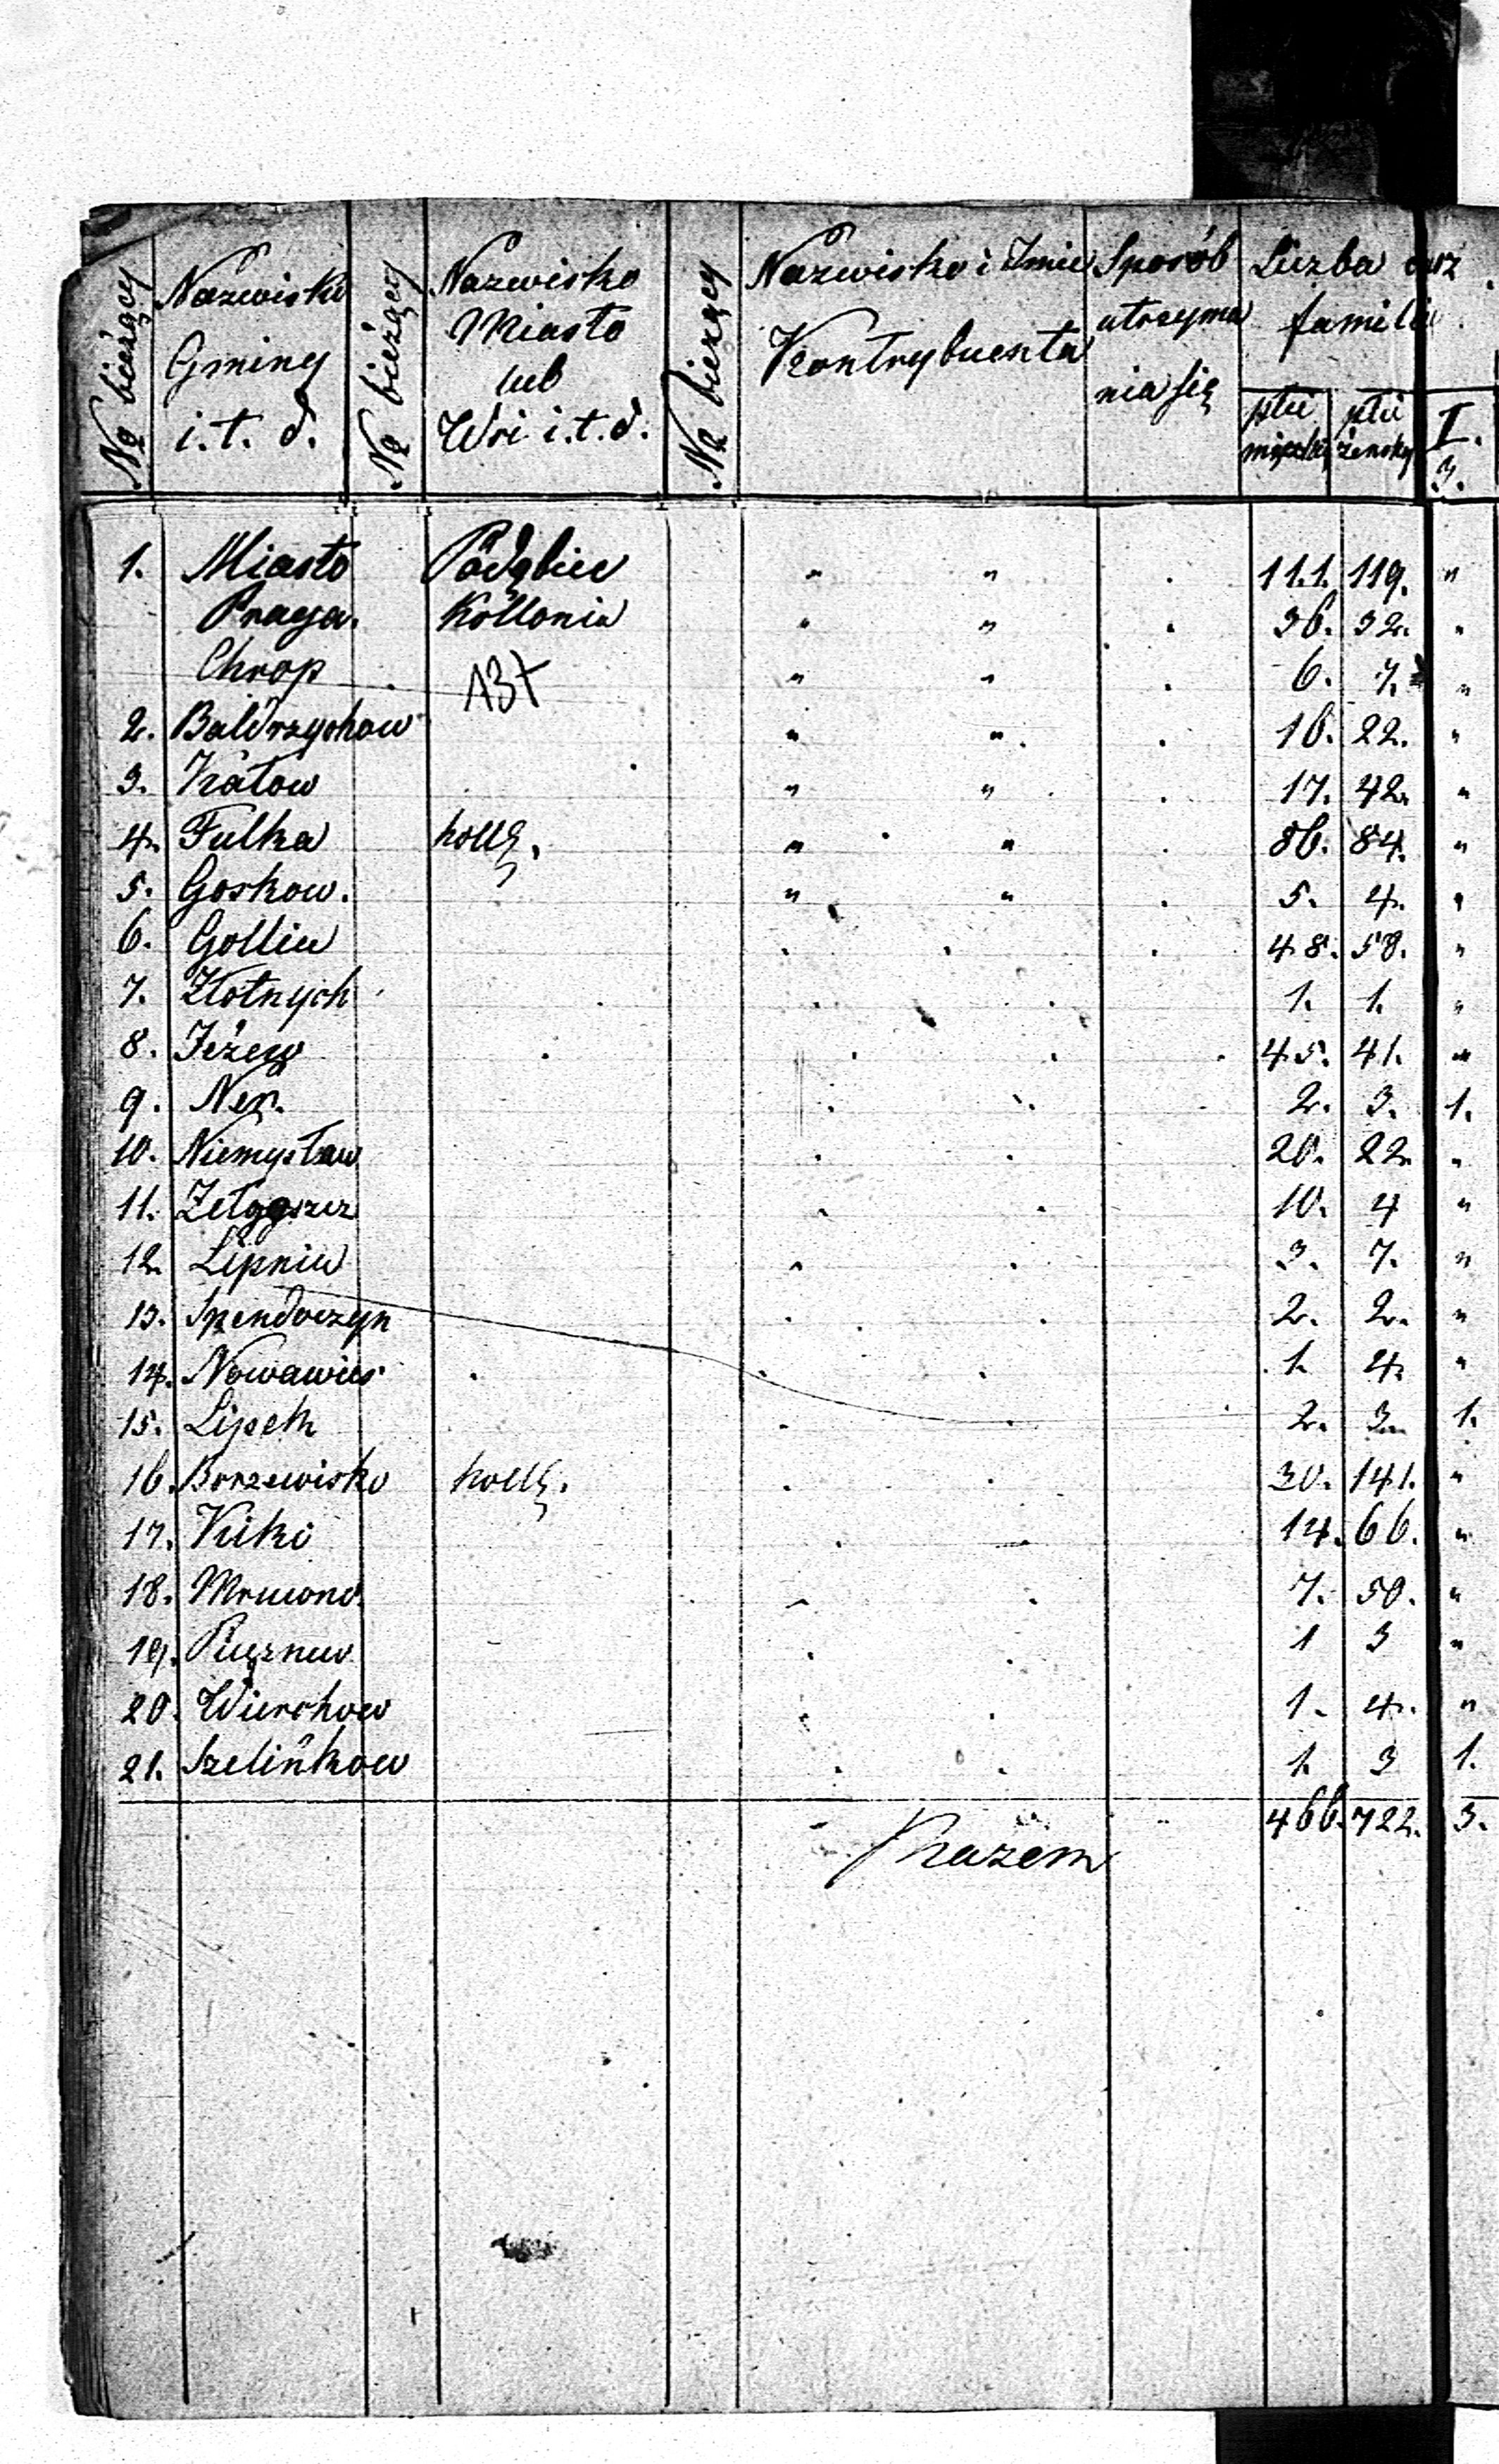 № bieżący Nazwisko Gminy i.t.d. № bieżący Nazwisko Miasto lub Wsi i.t.d. № bieżący Nazwisko i Imie Kontrybuenta Sposób utrzyma nia się Liczba familii płci męzki płci żenskiy I. 3.
1. Miasto Podębice " " . 111. 119. "
Praga. Kollonia " " . 36. 32. "
Chrop 137 " " . 6. 7. "
2. Baldrzychow " " . 16. 22. "
3. Kałow " " . 17. 42. "
4. Fulka kollą. " " . 86. 84. "
5. Goskow. " " . 5. 4. "
6. Gollice . . . 48. 58. "
7. Złotnych . . 1. 1. "
8. Jeżew . . . 45. 41. "
9. Ner. . . 2. 3. 1.
10. Niemysław . . 20. 22. "
11. . . 10. 4 "
12. Lipnica " . 3. 7. "
13. Spendoszyn . . 2. 2. "
14. Nowawies . . 1. 4. "
15. Lipek . . 2. 3. 1.
16. Borzewisko kollą. . . 30. 141. "
17. Kiki . . 14. 66. "
18. " . 7. 50. "
19. Puczniew . . 1 3 "
20. Wierchow . . 1. 4. "
21. Szelińkow . . 1. 3 1.
Razem 466. 722. 3.